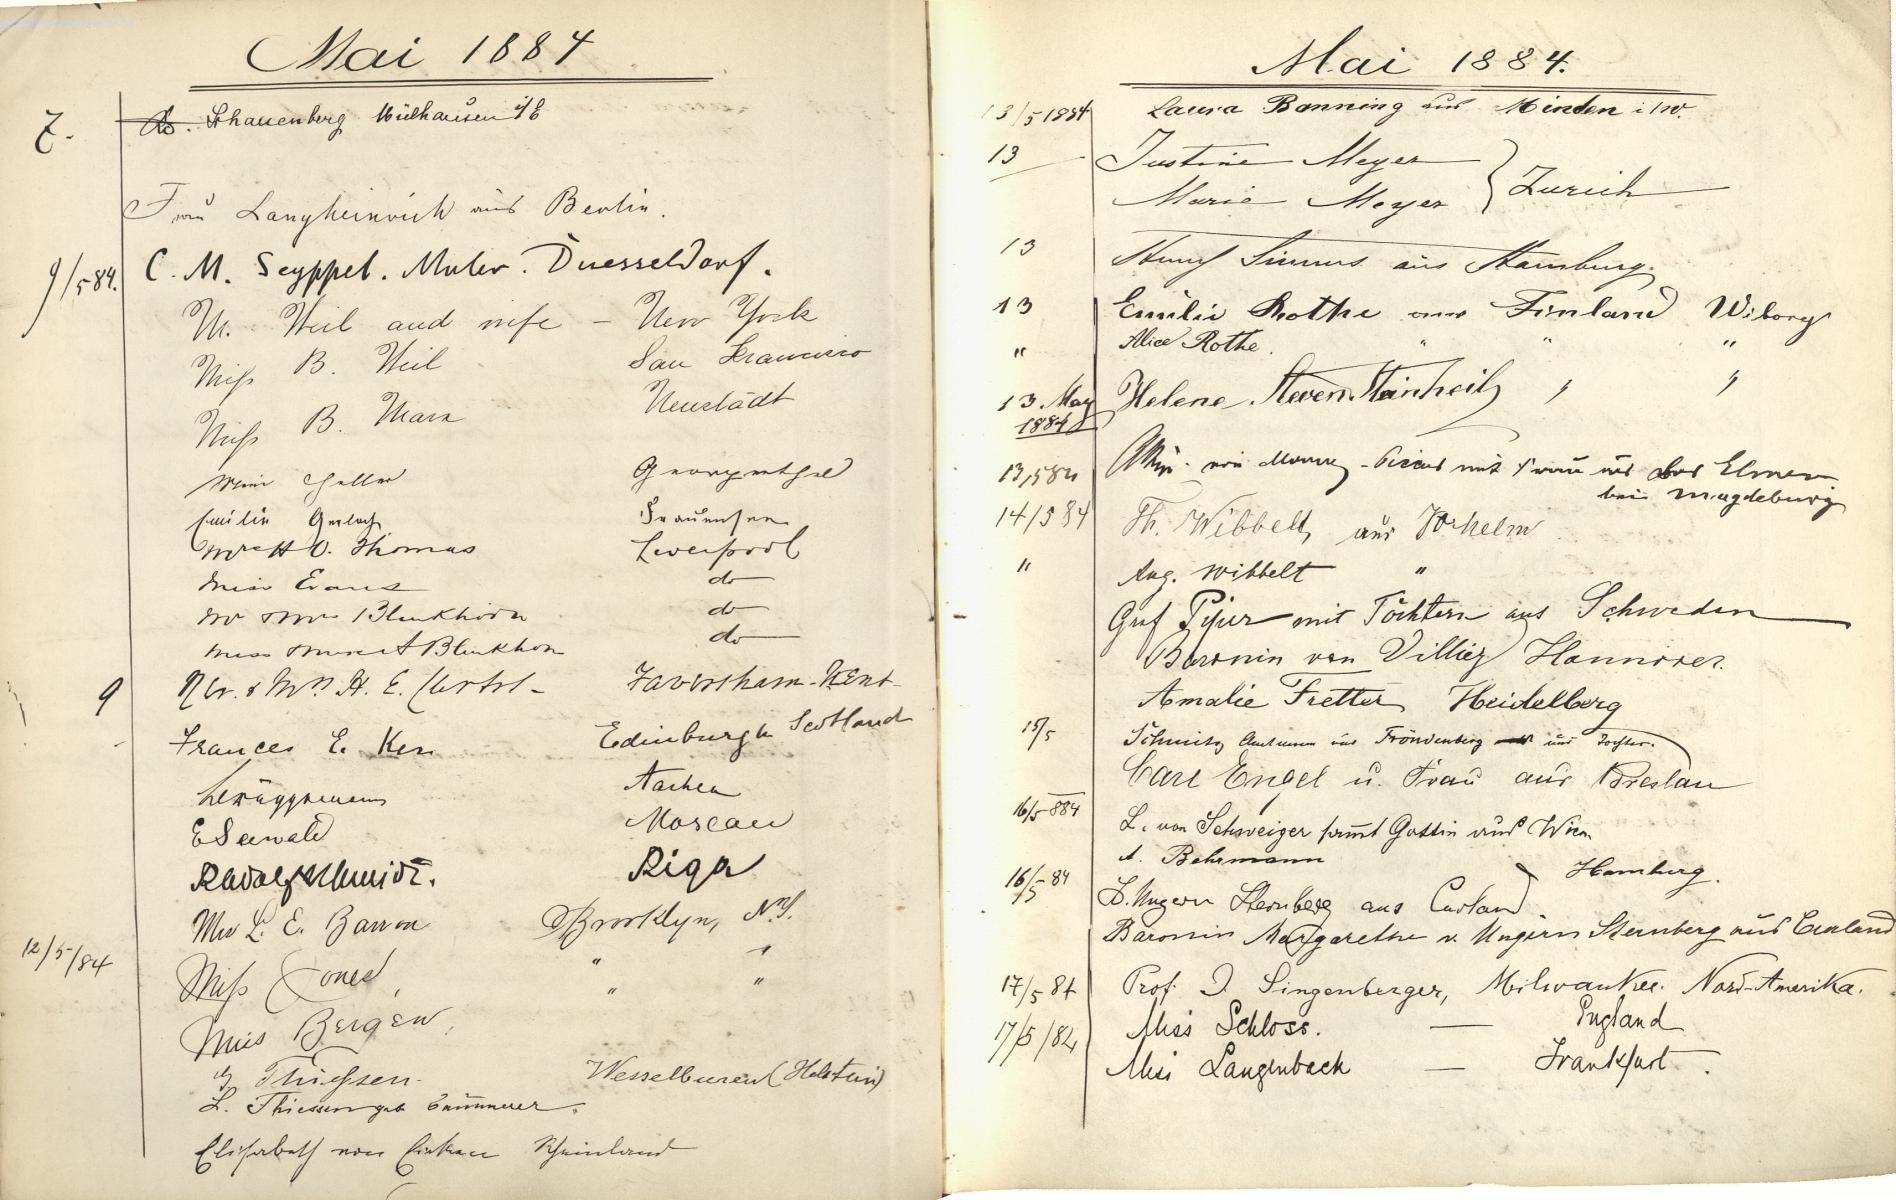 Mai 1884
7. Schauenberg Mülhausen i/E
Frau Langheinrich aus Berlin.
9/5 84. C. M. Seyppel. Maler. Duesseldorf.
M. Weil and wife – New York
Miss B. Weil San Francisco
Miss B. Marx Neustädt
Georgenthal
Emilie Gerlach Frauensee
O. Thomas Liverpool
Miss Evans do
Mr Mrs Blinkhorn do
Miss A Blinkhorn do
9 Mr. & Mrs. H. E. Faversham – Kent
Frances E. Kerr Edinburgh Scotland
Aachen
E Seewald Moscau
Rudolf Schmidt. Riga
Mrs L. E. Barron Brooklyn, N.Y.
12/5/84 Miss Jones, " "
Miss Bergen, " "
Thiessen. Wesselburen (Holstein)
L. Thiessen geb.
Elisabeth von Rheinland
Mai 1884.
13/5 1884 Laura Banning aus Minden i/W.
13 Justine Meyer
Marie Meyer } Zurich
13 Simms aus Hamburg.
13 Emilie Rothe aus Finland Wiborg
" Alice Rothe. " " "
13. May 1884 Helene Steven Steinheil " "
13,5 84 von mit Frau aus Elmen
bei Magdeburg
14/5 84 Th. Wibbelt, aus Vorhelm
" Aug. Wibbelt "
Graf Piper mit Töchtern aus Schweden
Baronin von Villiez Hannover.
Amalie Fretter Heidelberg
15/5 Schmitz Amtmann aus Fröndenberg und Tochter.
Carl Engel u. Frau aus Breslau
16/5 884 L. von Schweiger sammt Gattin aus Wien
A. Behrmann Hamburg.
16/5 84 Ungern Sternberg aus Curland
Baronin Margarethe v. Ungern Sternberg aus Curland
17/5 84 Prof. J. Singenberger, Milwaukee. Nord-Amerika.
17/5/84 Miss Schloss. — England
Miss Langenbeck — Frankfurt.